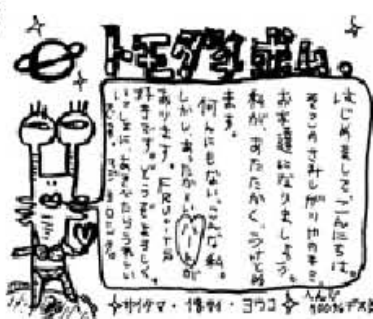 トモダチ ボム。
はじめまして。こんにちは。
そこのさみしがりやのキミ、
お友達になりましょう。
私が あたたかく うけとめ
ます。
何んにもない、こんな私。
しかし、あったか～いハートが
あります。FRUiTS
好きです。どうぞよろしく。
サイタマ・ ・ヨウコ
100%デス